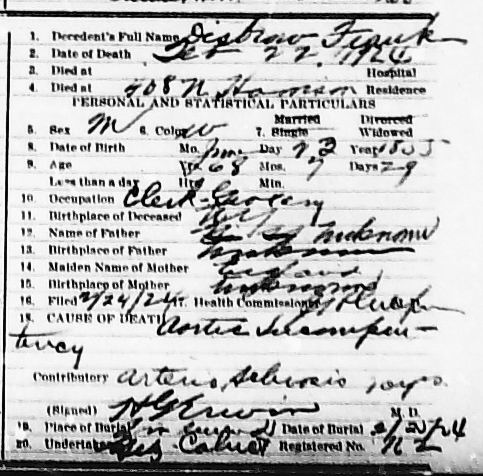 1. Decedent's Full Name Disbrow Frank
2. Date of Death Feb 22 1924
3. Died at Hospital
4. Died at 408 N Residence
PERSONAL AND STATISTICAL PARTICULARS
Married Divorced
5. Sex M 6. Color W 7. Single Widowed
8. Date of Birth Mo. June Day 23 Year 1855
9. Age Yrs 68 Mos. 7 Days 29
Less than a day Hrs Min.
10. Occupation Clerk - Grocery
11. Birthplace of Deceased N Y
12. Name of Father Unknown
13. Birthplace of Father
14. Maiden Name of Mother
15. Birthplace of Mother
16. Filed 2/24/24 17. Health Commissioner
18. CAUSE OF DEATH Aortic Incompeten-
tency
Contributory Arterio Sclerosis 10 yrs.
(Signed) H G Erwin M. D.
19. Place of Burial Date of Burial 2/25/24
20. Undertaker Registered No.